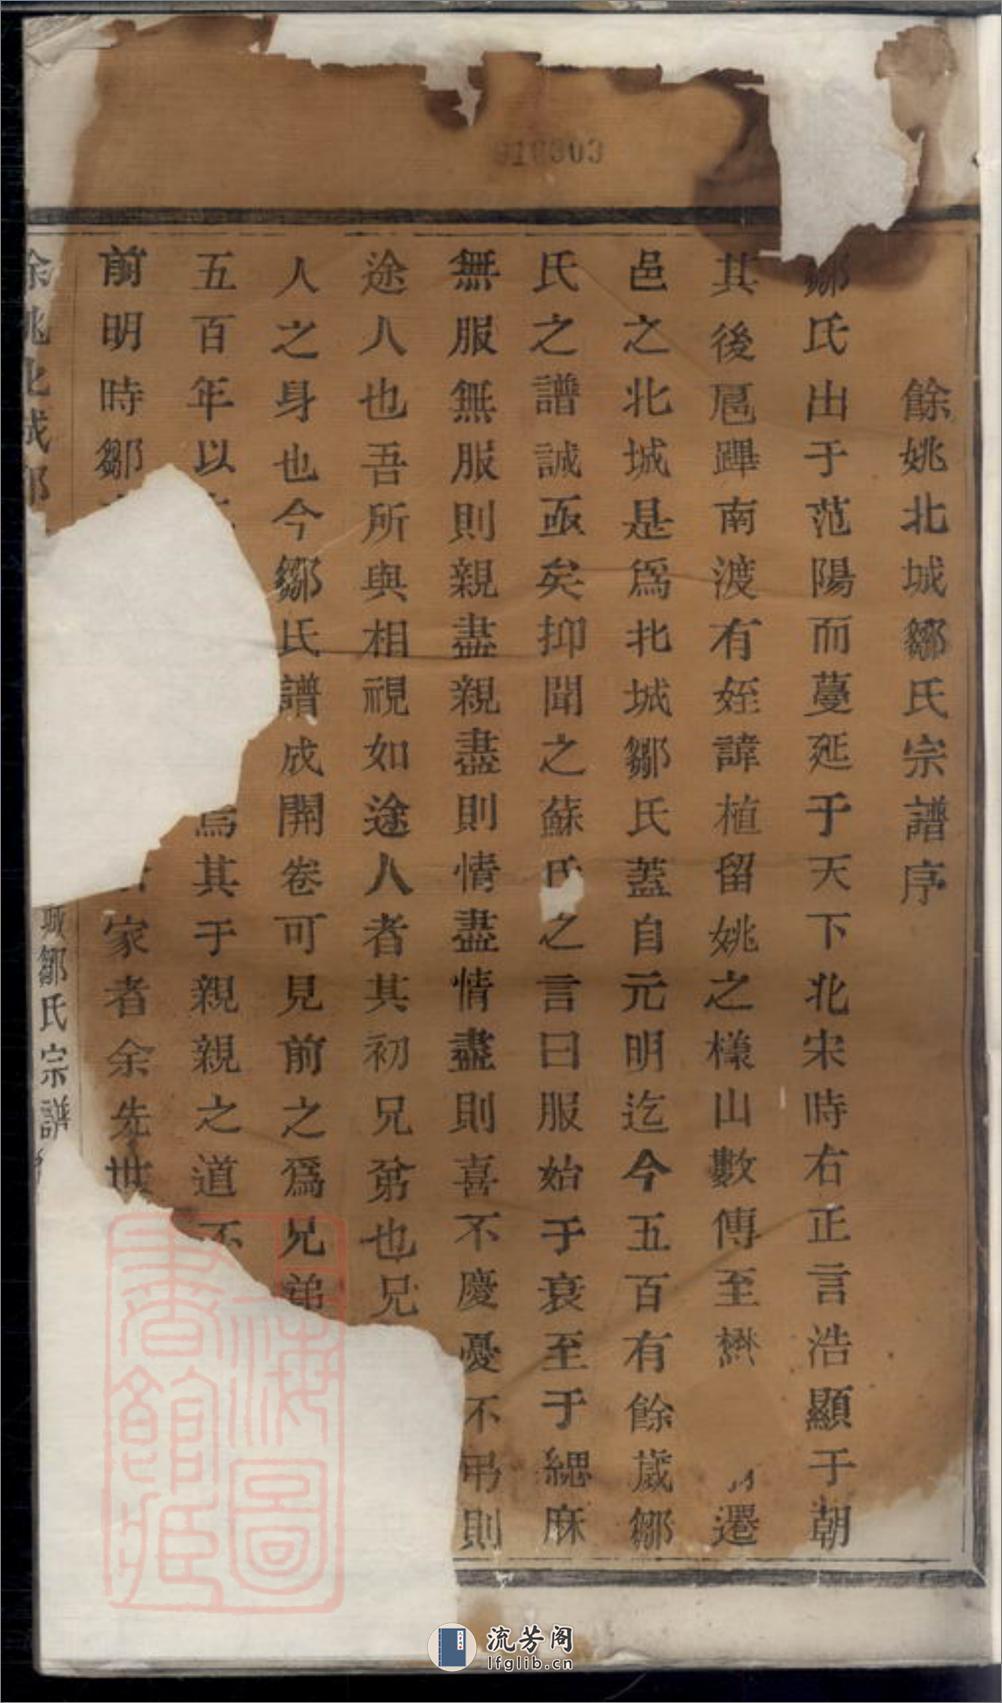 910303
餘姚北城鄒氏宗譜序
鄒氏出于范陽而蔓延于天下北宋時右正言浩顯于朝
其後扈蹕南渡有姪諱植留姚之樣山數傳至楙遷
邑之北城是爲北城鄒氏蓋自元明迄今五百有餘歲鄒
氏之譜誠亟矣抑聞之蘇氏之言曰服始于衰至于緦麻
無服無服則親盡親盡則情盡情盡則喜不慶憂不弔則
途人也吾所與相視如途人者其初兄弟也兄
人之身也今鄒氏譜成開卷可見前之爲兄弟
五百年以
爲其于親親之道不
前明時鄒
家者余先世
餘姚北城鄒
城鄒氏宗譜
上海圖書館藏
流芳阁
lfglib.cn